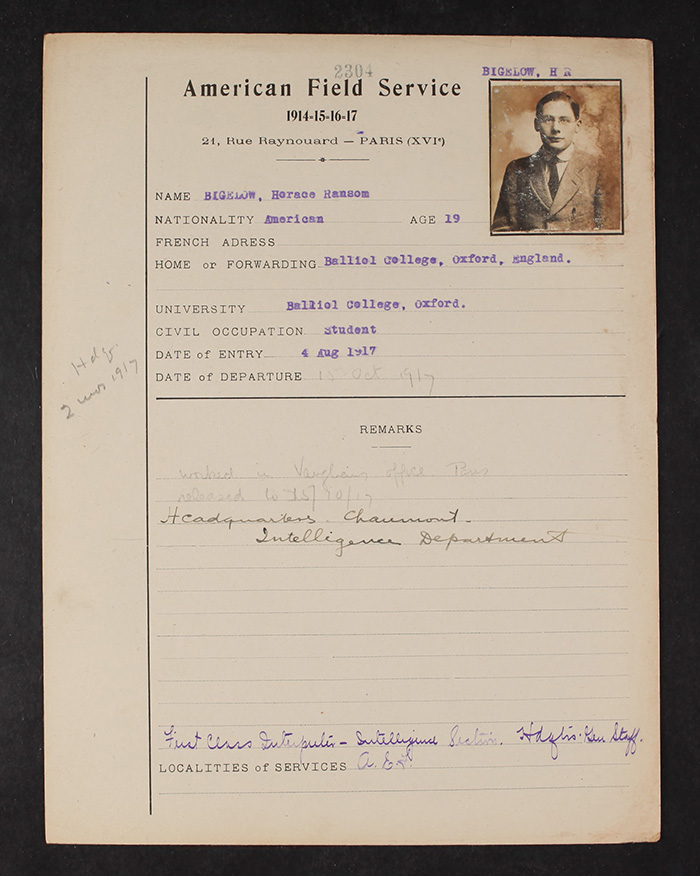 2304
BIGELOW, H R
American Field Service
1914-15-16-17
21, Rue Raynouard — PARIS (XVIe)
NAME BIGELOW, Horace Ransom
NATIONALITY American AGE 19
FRENCH ADRESS
HOME or FORWARDING Balliol College, Oxford, England.
UNIVERSITY Balliol College, Oxford.
CIVIL OCCUPATION Student
DATE of ENTRY 4 Aug 1917
DATE of DEPARTURE 15 Oct 1917
Hdq
2 1917
REMARKS
worked in office Paris
released 10/15/17
Headquarters. Chaumont.
Intelligence Department
First Class Interpreter – Intelligence Section. Hdqtrs. Gen Staff.
LOCALITIES of SERVICES A.E.F.